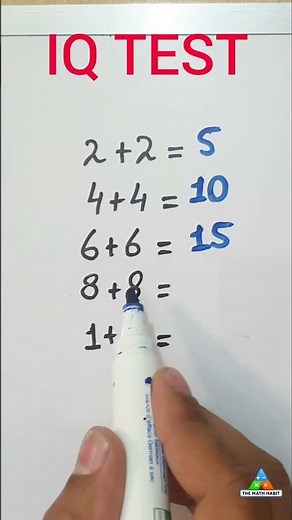 IQ TEST
2+2 = 5
4+4 = 10
6+6 = 15
8+8 =
1+ =
THE MATH HABIT